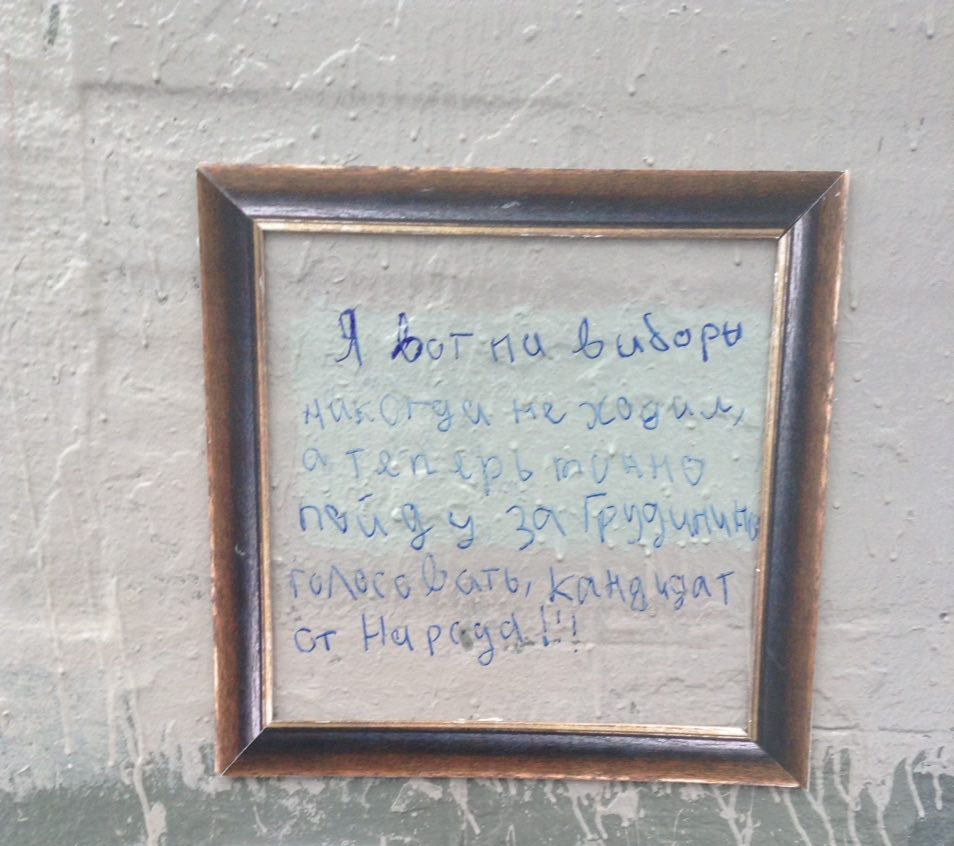 Я вот на виборы
никогда не ходил,
а теперь точно
пойду за Грудинина
голосовать, кандидат
от Народа!!!